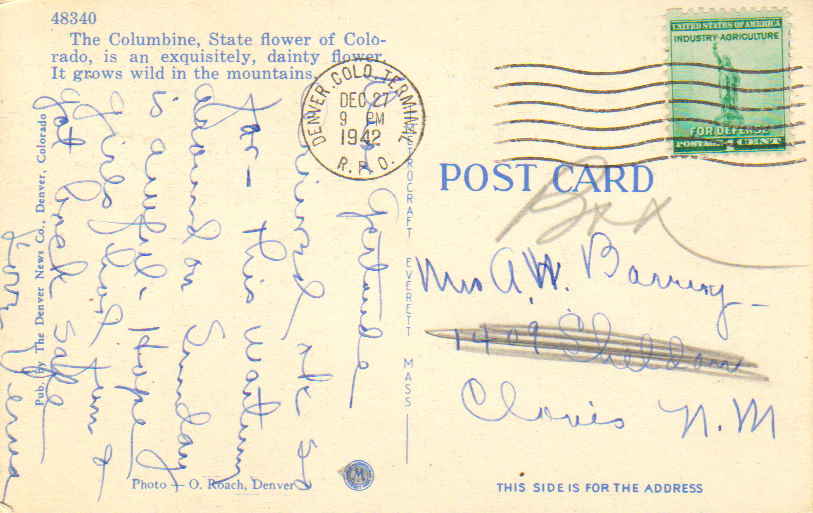 48340
The Columbine, State flower of Colo-
rado, is an exquisitely, dainty flower.
It grows wild in the mountains.
DENVER COLO. TERMINAL
DEC 27
9 PM
1942
R.P.O.
UNITED STATES OF AMERICA
INDUSTRY AGRICULTURE
FOR DEFENSE
POSTAGE 1 CENT
POST CARD
Box
Mrs A. W.
1409 Sheldon
Clovis N.M
THIS SIDE IS FOR THE ADDRESS
METROCRAFT EVERETT MASS
Pub. by The Denver News Co., Denver, Colorado
Photo — O. Roach, Denver
Gertrude
arrived ok so
far – this waiting
around on Sunday
is awful. Hope
girls had fun &
got back safe
Love